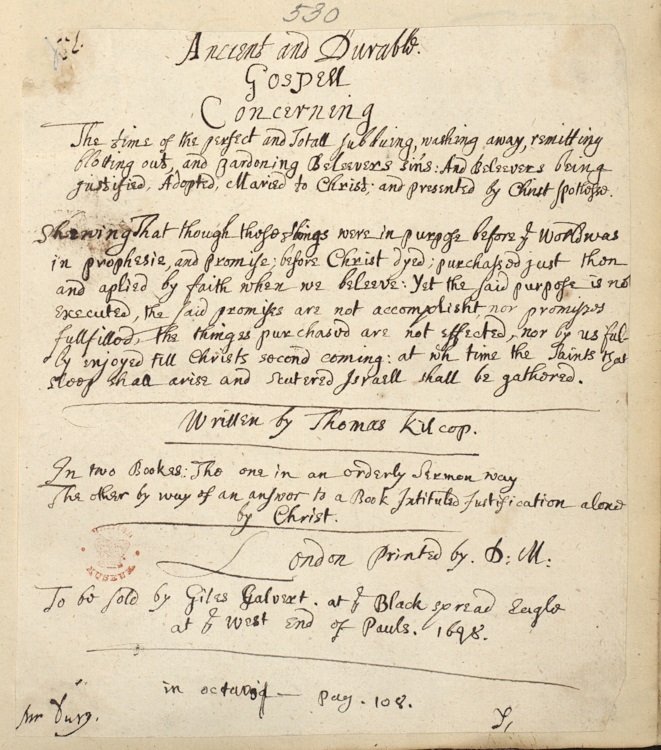 530
Ancient and Durable.
Gospell
Concerning
The time of the perfect and Totall subduing, washing away, remitting
blotting out, and pardoning Beleevers sins: And Beleevers being
justified, Adopted, Maried to Christ; and presented by Christ spotlesse.
Shewing That though those things were in purpose before ye World was
in prophesie, and promise; before Christ dyed; purchased just then
and aplied by faith when we beleeve: Yet the said purpose is not
executed, the said promises are not accomplisht nor promises
fullfilled, the things purchased are not effected, nor by us ful-
ly enjoyed till Christs second coming: at wh time the Saints that
sleep shall arise and scatered Israell shall be gathered.
Written by Thomas Kilcop.
In two Bookes: The one in an orderly Sermon way
The other by way of an answer to a Book Intituled Justification alone
by Christ.
London Printed by. D: M:
MUSEUM
To be sold by Giles Galvert. at ye Black spread Eagle
at ye West End of Pauls. 1648.
in octavis — pag. 108.
Mr Dury.